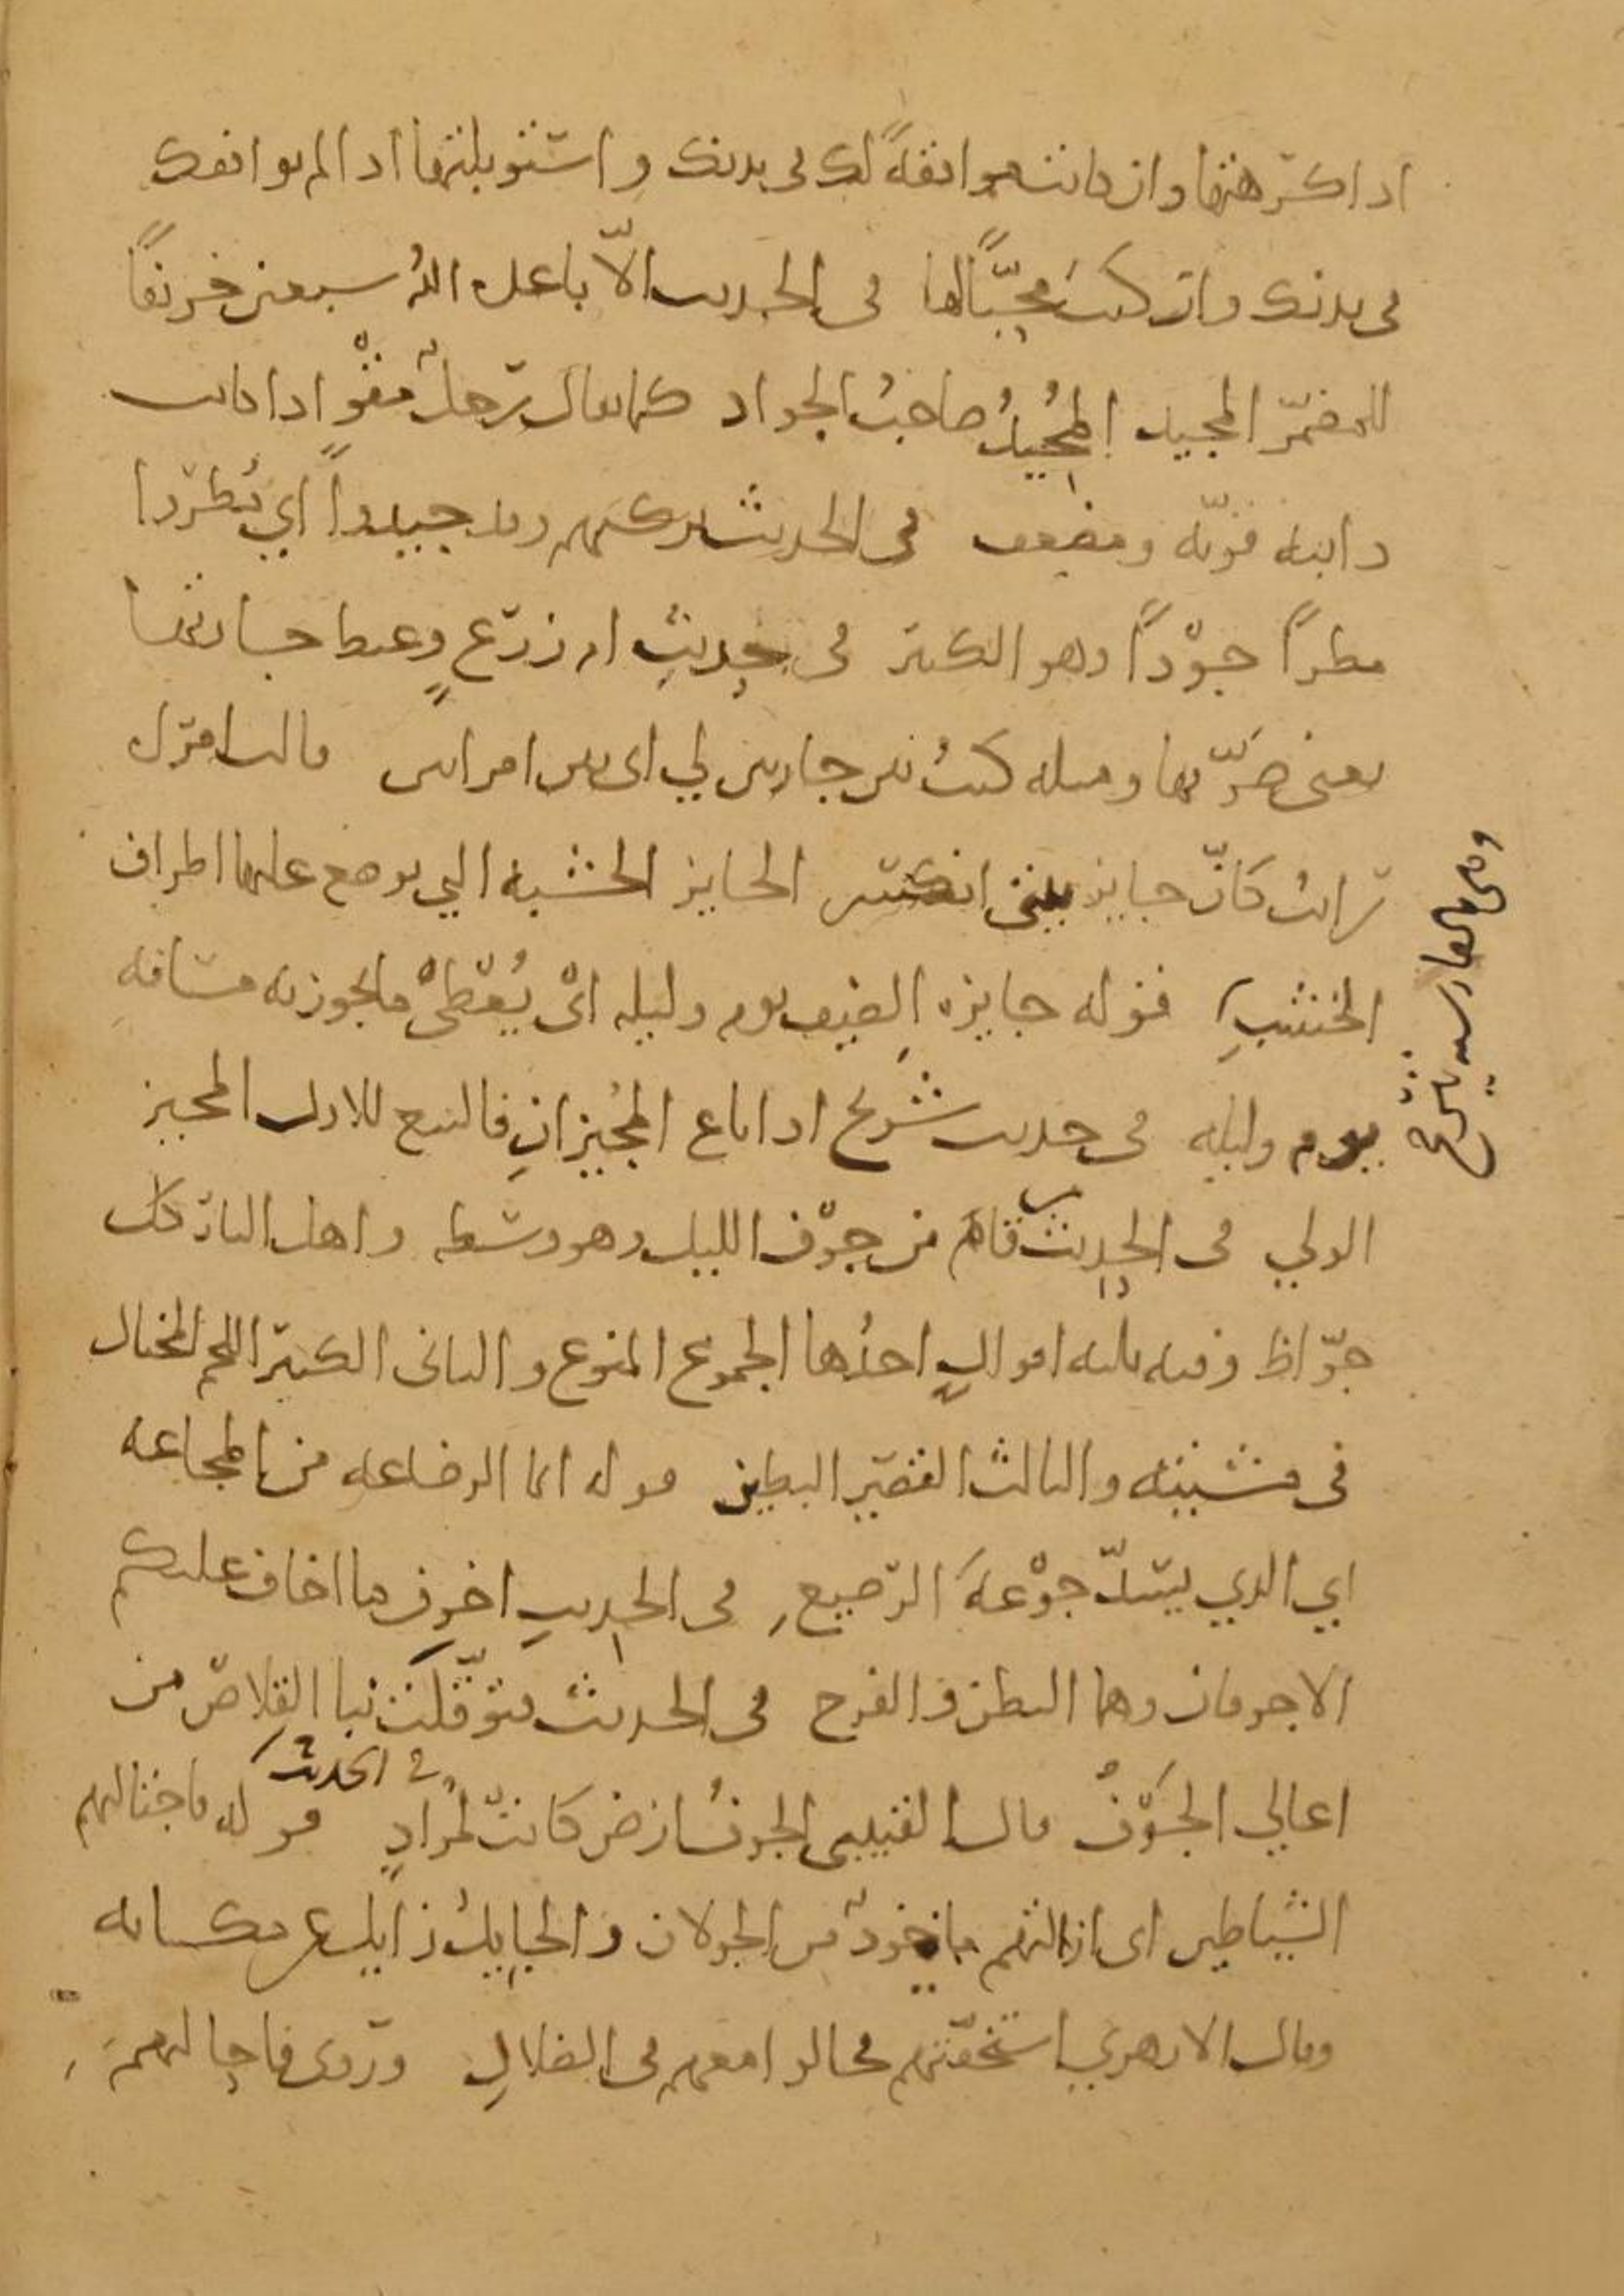 اذا كرهتها وان كانت موافقةً لك في بدنك واستوبلتها اذا لم توافقك
في بدنك وان كنت محبًّا لها في الحديث الّا باعده الله سبعين خريفًا
للمضمّر المجيد المُجيدُ صاحبُ الجواد كما يقال رجلٌ مقْوٍ اذا كانت
دابته قويّه ومضعف في الحديث تركتهم وقد جيدوا اي مُطروا
مطرًا جوْدًا وهو الكثير في حديث ام زرعٍ وغيظ جارتها
يعني ضرّتها ومثله كنتُ بين جارتين لي اى بين امراتين قالت امراه
رايت كانّ جايز بيتى انكسر الجايز الخشبه التي يوضع عليها اطراف
الخشبِ قوله جايزه الضيف يوم وليله اىْ يُعْطىْ ما يجوز به مسافه
يوم وليله في حديث شريح اذا باع المُجيزانِ فالبيع للاول المجيز
الولي في الحديث قام من جوْف الليل وهو وسطه واهل النار كل
جوّاظ وفيه ثلثه اقوالٍ احدُها الجموع المنوع والثاني الكثير اللحم المختال
في مشيته والثالث القصير البطين قوله انما الرضاعه من المجاعه
اي الذي يسدّ جوْعهَ الرضيع في الحديث اخوف ما اخاف عليكم
الاجوفان وهما البطن والفرج في الحديث فتوقّلت بنا القلاص من
اعالي الجَوْفُ قال القتيبي الجوفُ ارض كانت لمرادٍ في الحديث قوله فاجتالتهم
الشياطين اى ازالتهم ماخوذٌ من الجولان والجايلُ زايل عن مكانه
وقال الازهري استخفّتهم فجالوا معهم في الضلالِ وروى فاجالتهم